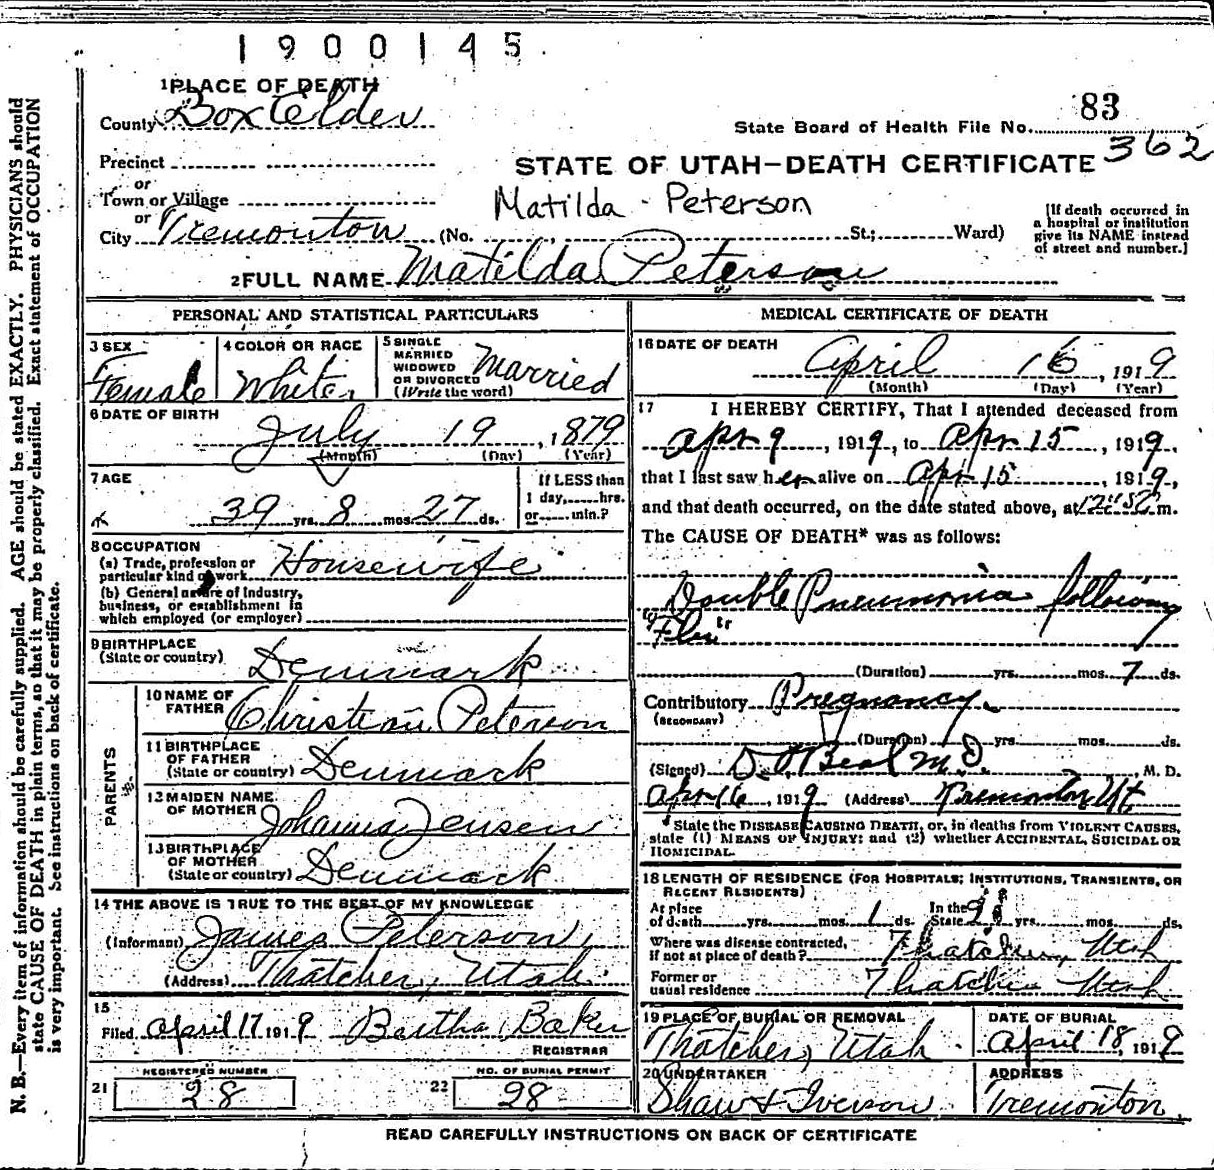 1900145
1 PLACE OF DEATH
County Box Elder
83
State Board of Health File No.
362
Precinct
STATE OF UTAH—DEATH CERTIFICATE
or
Town or Village
Matilda Peterson
or
City Tremonton (No. St.; Ward)
[If death occurred in
a hospital or institution
give its NAME instead
of street and number.]
2 FULL NAME Matilda Peterson
PERSONAL AND STATISTICAL PARTICULARS
3 SEX
Female
4 COLOR OR RACE
White
5 SINGLE
MARRIED
WIDOWED
OR DIVORCED
(Write the word)
Married
6 DATE OF BIRTH
July 19, 1879
(Month) (Day) (Year)
7 AGE
39 yrs. 8 mos. 27 ds.
If LESS than
1 day, hrs.
or min.?
8 OCCUPATION
(a) Trade, profession or
particular kind of work Housewife
(b) General nature of Industry,
business, or establishment in
which employed (or employer)
9 BIRTHPLACE
(State or country) Denmark
PARENTS
10 NAME OF
FATHER Christian Peterson
11 BIRTHPLACE
OF FATHER
(State or country) Denmark
12 MAIDEN NAME
OF MOTHER Johanna Jensen
13 BIRTHPLACE
OF MOTHER
(State or country) Denmark
14 THE ABOVE IS TRUE TO THE BEST OF MY KNOWLEDGE
(Informant) James Peterson
(Address) Thatcher, Utah
15
Filed April 17 1919 Bertha Baker
REGISTRAR
REGISTERED NUMBER
21 28
NO. OF BURIAL PERMIT
22 28
MEDICAL CERTIFICATE OF DEATH
16 DATE OF DEATH
April 16, 1919
(Month) (Day) (Year)
17 I HEREBY CERTIFY, That I attended deceased from
Apr 9, 1919, to Apr 15, 1919,
that I last saw her alive on Apr 15, 1919,
and that death occurred, on the date stated above, at m.
The CAUSE OF DEATH* was as follows:
Double Pneumonia following
"Flu"
(Duration) yrs. mos. 7 ds.
Contributory Pregnancy
(SECONDARY)
(Duration) yrs. mos. ds.
(Signed) D. O. Beal M.D., M. D.
Apr 16, 1919 (Address) Tremonton Ut
*State the DISEASE CAUSING DEATH, or, in deaths from VIOLENT CAUSES,
state (1) MEANS OF INJURY; and (2) whether ACCIDENTAL, SUICIDAL OR
HOMICIDAL.
18 LENGTH OF RESIDENCE (FOR HOSPITALS, INSTITUTIONS, TRANSIENTS, OR
RECENT RESIDENTS)
At place
of death yrs. mos. 1 ds.
In the
State yrs. mos. ds.
Where was disease contracted,
if not at place of death? Thatcher, Utah
Former or
usual residence Thatcher Utah
19 PLACE OF BURIAL OR REMOVAL
Thatcher, Utah
DATE OF BURIAL
April 18, 1919
20 UNDERTAKER
Shaw & Iverson
ADDRESS
Tremonton
READ CAREFULLY INSTRUCTIONS ON BACK OF CERTIFICATE
N. B.—Every item of information should be carefully supplied. AGE should be stated EXACTLY. PHYSICIANS should
state CAUSE OF DEATH in plain terms, so that it may be properly classified. Exact statement of OCCUPATION
is very important. See instructions on back of certificate.